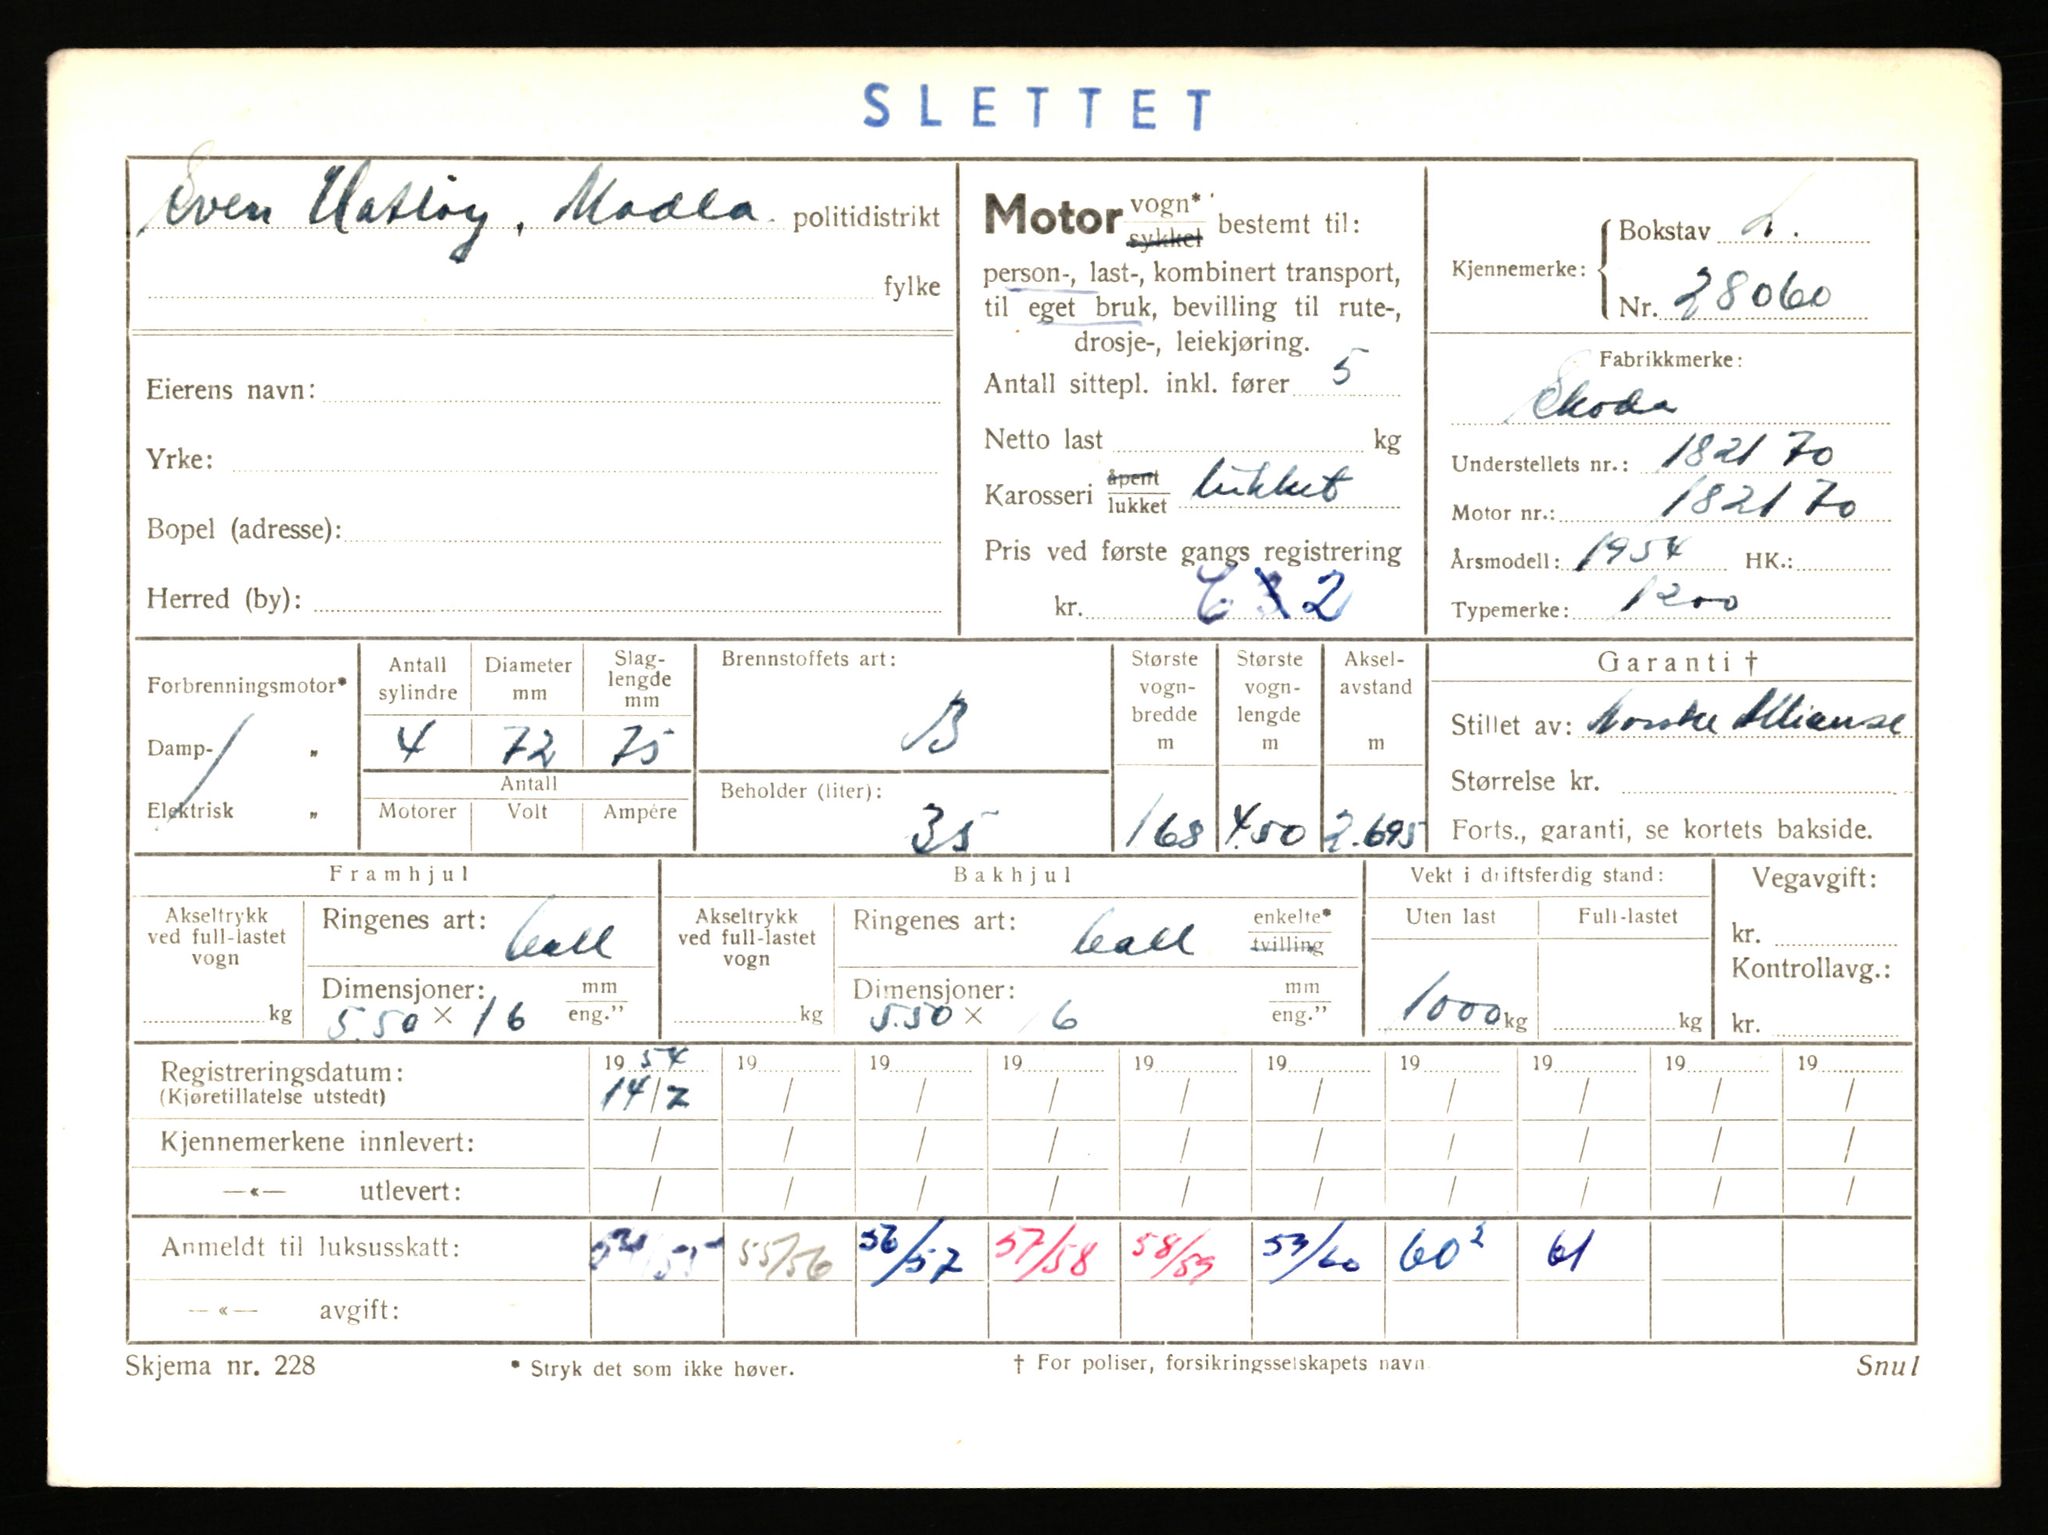 SLETTET
Sven Hatløy, Madla. politidistrikt
fylke
Eierens navn:
Yrke:
Bopel (adresse):
Herred (by):
Motor vogn* sykkel bestemt til:
person-, last-, kombinert transport,
til eget bruk, bevilling til rute-,
drosje-, leiekjøring.
Antall sittepl. inkl. fører 5
Netto last kg
Karosseri åpent lukket lukket
Pris ved første gangs registrering
kr. 2
Kjennemerke: Bokstav L.
Nr. 28060
Fabrikkmerke:
Skoda
Understellets nr.: 182170
Motor nr.: 182170
Årsmodell: 1954 HK.:
Typemerke: 1200
Forbrenningsmotor*
Damp- „
Elektrisk „
Antall sylindre Diameter mm Slag-lengde mm
4 72 75
Antall
Motorer Volt Ampére
Brennstoffets art:
B
Beholder (liter):
35
Største vogn-bredde m Største vogn-lengde m Aksel-avstand m
1.68 4.50 2.695
Garanti †
Stillet av: Norske Allianse
Størrelse kr.
Forts., garanti, se kortets bakside.
Framhjul
Akseltrykk ved full-lastet vogn
kg
Ringenes art:
Dimensjoner: mm eng.”
5.50 × 16
Bakhjul
Akseltrykk ved full-lastet vogn
kg
Ringenes art: enkelte* tvilling
Dimensjoner: mm eng.”
5.50 × 16
Vekt i driftsferdig stand:
Uten last Full-lastet
1000 kg kg
Vegavgift:
kr.
Kontrollavg.:
kr.
Registreringsdatum: 19 54 19 19 19 19 19 19 19 19 19
(Kjøretillatelse utstedt) 14/7 / / / / / / / / /
Kjennemerkene innlevert: / / / / / / / / / /
—«— utlevert: / / / / / / / / / /
Anmeldt til luksusskatt: 54/55 55/56 56/57 57/58 58/59 59/60 60² 61
—«— avgift:
Skjema nr. 228 * Stryk det som ikke høver. † For poliser, forsikringsselskapets navn. Snul